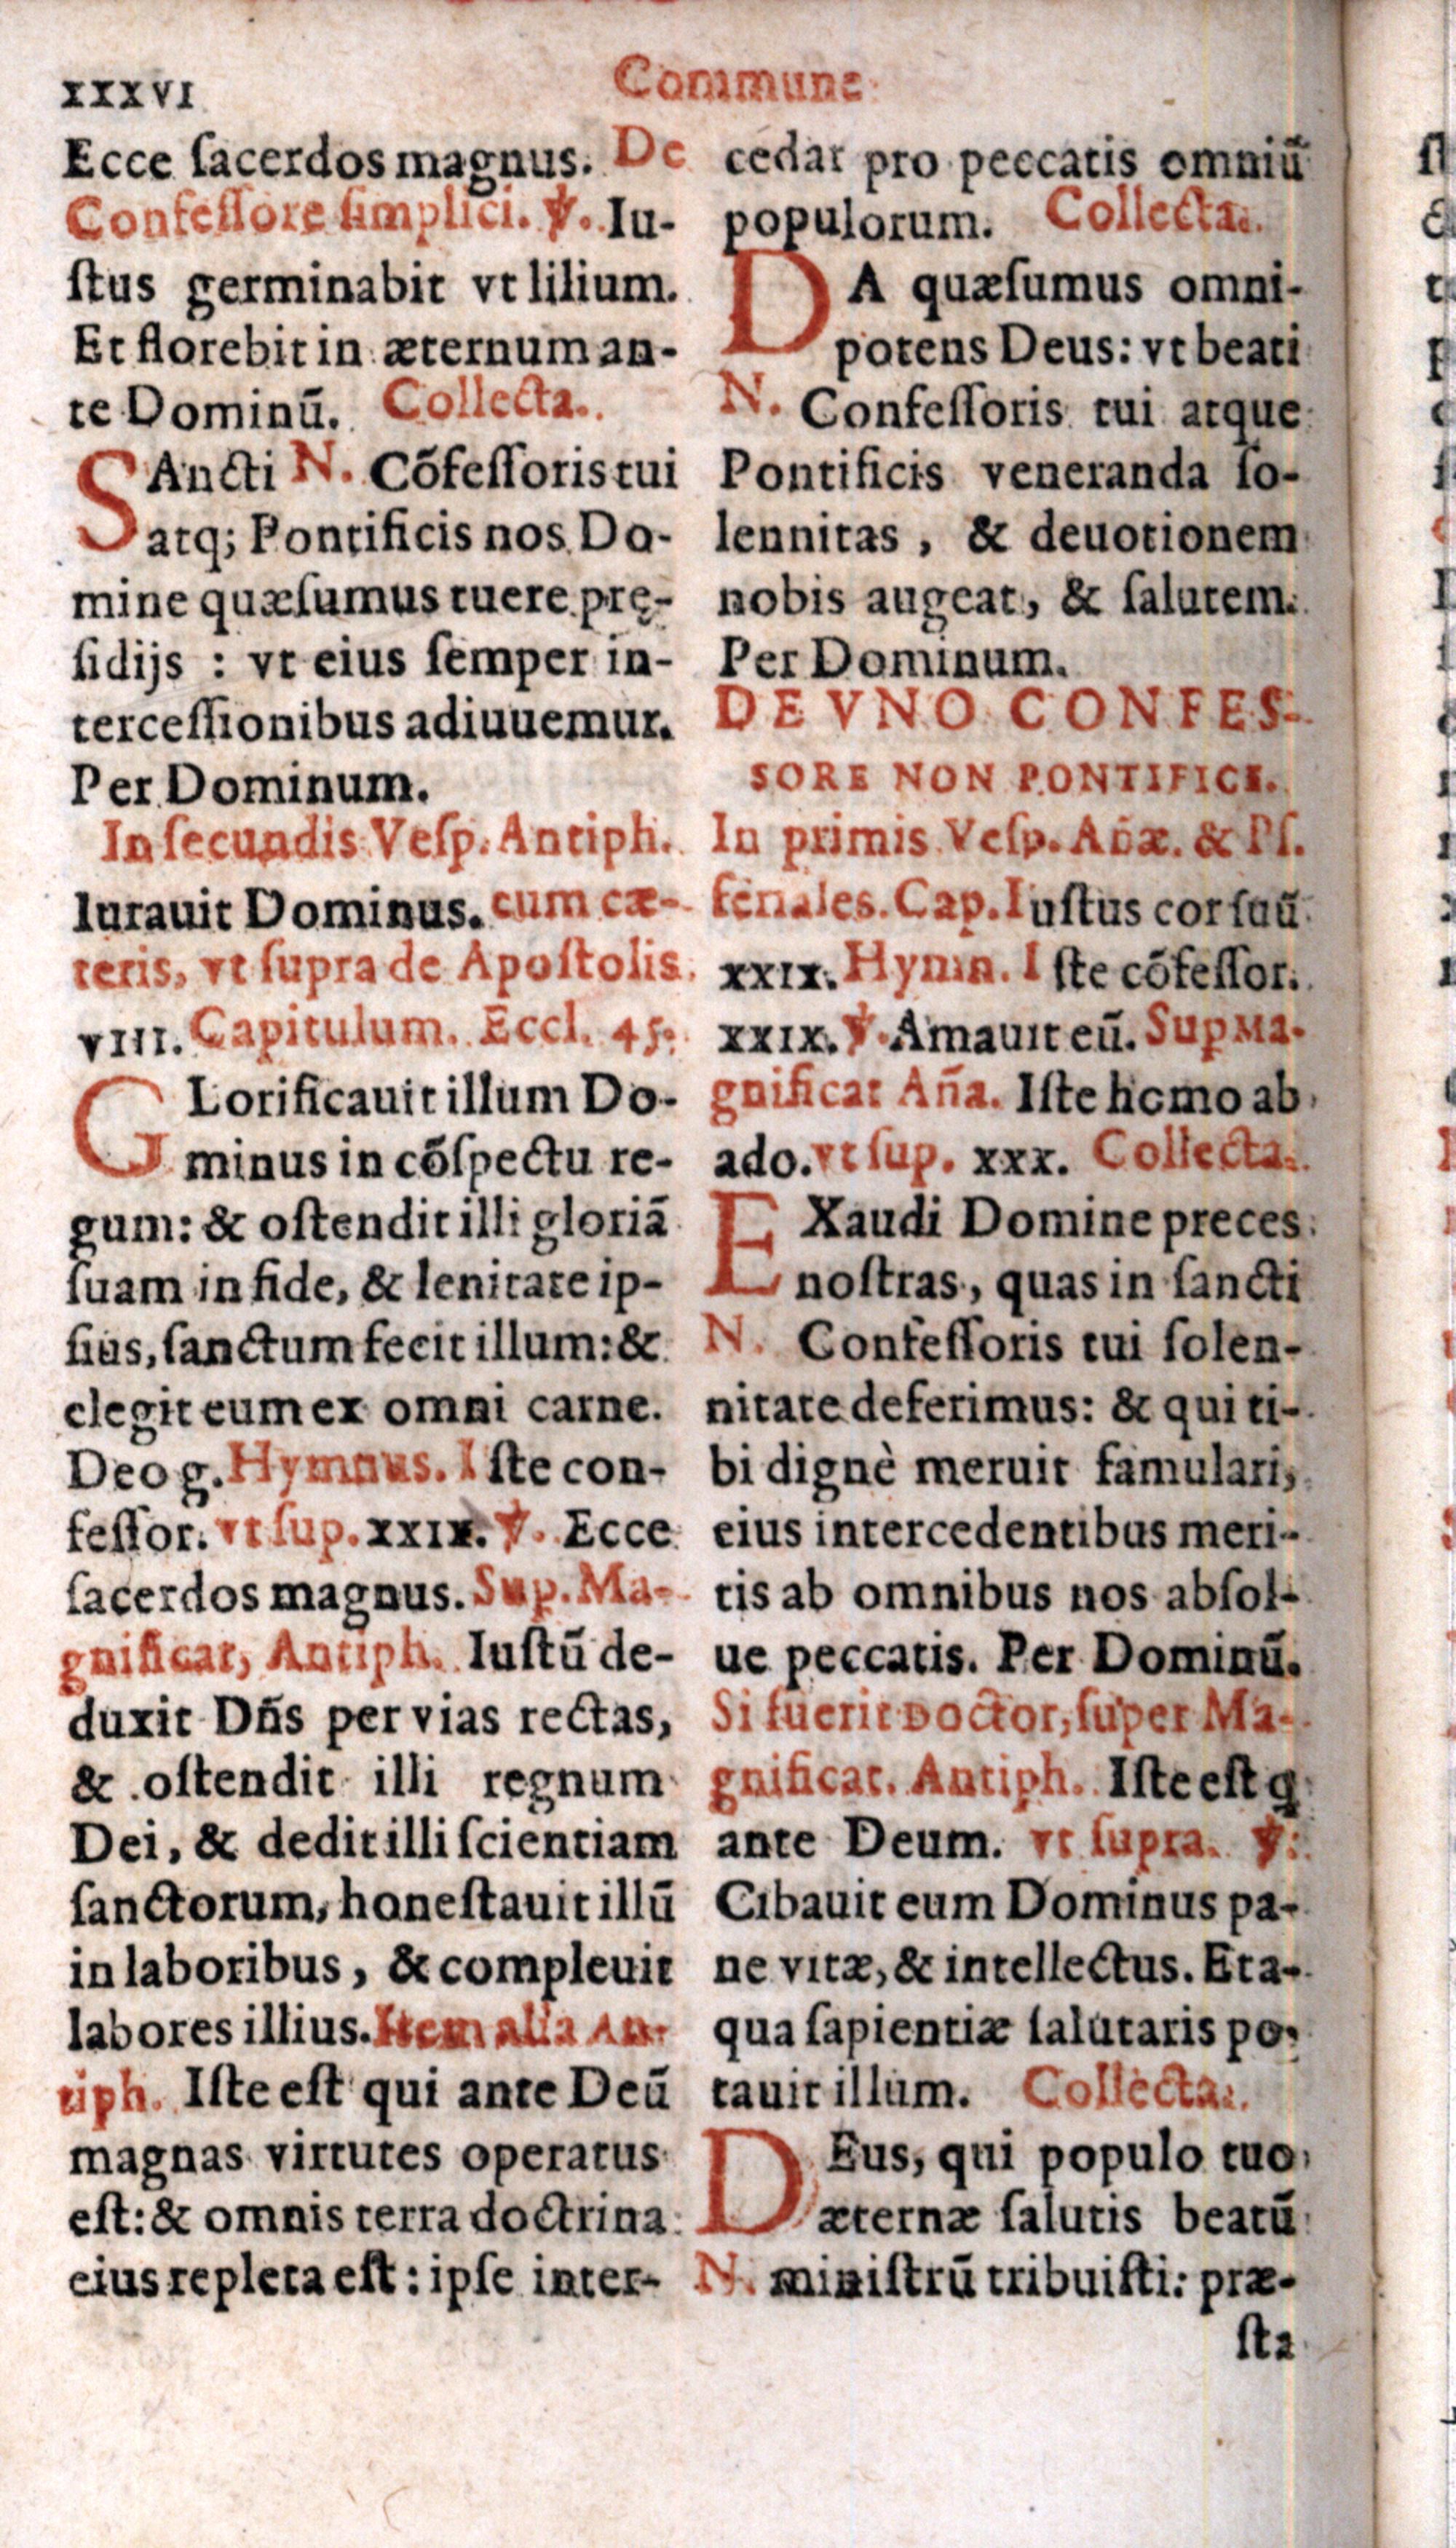 XXXVI
Commune
Ecce ſacerdos magnus. De
Confeſſore ſimplici. ℣. Iu-
ſtus germinabit vt lilium.
Et florebit in æternum an-
te Dominū. Collecta.
SAncti N. Cōfeſſoris tui
atq; Pontificis nos Do-
mine quæſumus tuere prę-
ſidijs : vt eius ſemper in-
terceſſionibus adiuuemur.
Per Dominum.
In ſecundis Veſp. Antiph.
Iurauit Dominus. cum cæ-
teris, vt ſupra de Apoſtolis.
VIII. Capitulum. Eccl. 45.
GLorificauit illum Do-
minus in cōſpectu re-
gum: & oſtendit illi gloriā
ſuam in fide, & lenitate ip-
ſius, ſanctum fecit illum: &
elegit eum ex omni carne.
Deo g. Hymnus. Iſte con-
feſſor. vt ſup. XXIX. ℣. Ecce
ſacerdos magnus. Sup. Ma-
gnificat, Antiph. Iuſtū de-
duxit Dñs per vias rectas,
& oſtendit illi regnum
Dei, & dedit illi ſcientiam
ſanctorum, honeſtauit illū
in laboribus, & compleuit
labores illius. Item alia An-
tiph. Iſte eſt qui ante Deū
magnas virtutes operatus
eſt: & omnis terra doctrina
eius repleta eſt : ipſe inter-
cedat pro peccatis omniū
populorum. Collecta.
DA quæſumus omni-
potens Deus: vt beati
N. Confeſſoris tui atque
Pontificis veneranda ſo-
lennitas, & deuotionem
nobis augeat, & ſalutem.
Per Dominum.
DE VNO CONFES-
SORE NON PONTIFICE.
In primis Veſp. Añæ. & Pſ.
feriales. Cap. Iuſtus cor ſuū
XXIX. Hymn. Iſte cōfeſſor.
XXIX. ℣. Amauit eū. Sup Ma-
gnificat Aña. Iſte homo ab
ado. vt ſup. XXX. Collecta.
EXaudi Domine preces
noſtras, quas in ſancti
N. Confeſſoris tui ſolen-
nitate deferimus: & qui ti-
bi dignè meruit famulari,
eius intercedentibus meri-
tis ab omnibus nos abſol-
ue peccatis. Per Dominū.
Si fuerit Doctor, ſuper Ma-
gnificat. Antiph. Iſte eſt q
ante Deum. vt ſupra. ℣.
Cibauit eum Dominus pa-
ne vitæ, & intellectus. Et a-
qua ſapientiæ ſalutaris po-
tauit illum. Collecta.
DEus, qui populo tuo
æternæ ſalutis beatū
N. miniſtrū tribuiſti: præ-
ſta